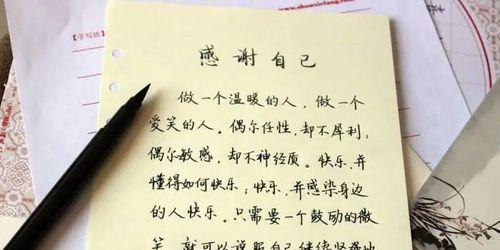 【手写坊】
感谢自己
做一个温暖的人，做一个
爱笑的人。偶尔任性，却不犀利；
偶尔敏感，却不神经质。快乐、并
懂得如何快乐；快乐、并感染身边
的人快乐。只需要一个鼓励的微
笑，就可以说服自己继续坚强